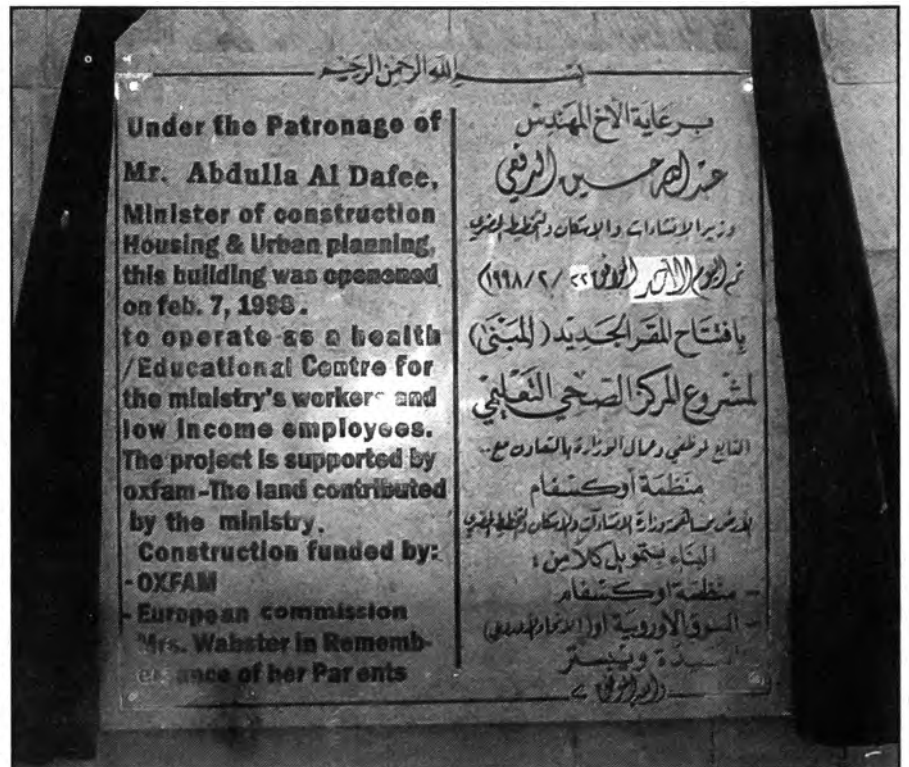 بسم الله الرحمن الرحيم
Under the Patronage of
Mr. Abdulla Al Dafee,
Minister of construction
Housing & Urban planning,
this building was openened
on feb. 7, 1998.
to operate as a health
/Educational Centre for
the ministry's workers and
low income employees.
The project is supported by
oxfam-The land contributed
by the ministry.
Construction funded by:
- OXFAM
- European commission
Mrs. Wabster in Rememb-
erance of her Parents
برعاية الأخ المهندس
عبدالله حسين الدفعي
وزير الإنشاءات والإسكان والتخطيط الحضري
تم اليوم الأحد الموافق ٢٢/٢/١٩٩٨)
بافتتاح المقر الجديد (المبنى)
لمشروع المركز الصحي التعليمي
التابع لموظفي وعمال الوزارة بالتعاون مع..
منظمة أوكسفام
الأرض مساهمة وزارة الإنشاءات والإسكان والتخطيط الحضري
البناء بتمويل كلا من:
- منظمة أوكسفام
- السوق الأوروبية أو (الاتحاد الأوروبي)
السيدة ويبستر
والله الموفق